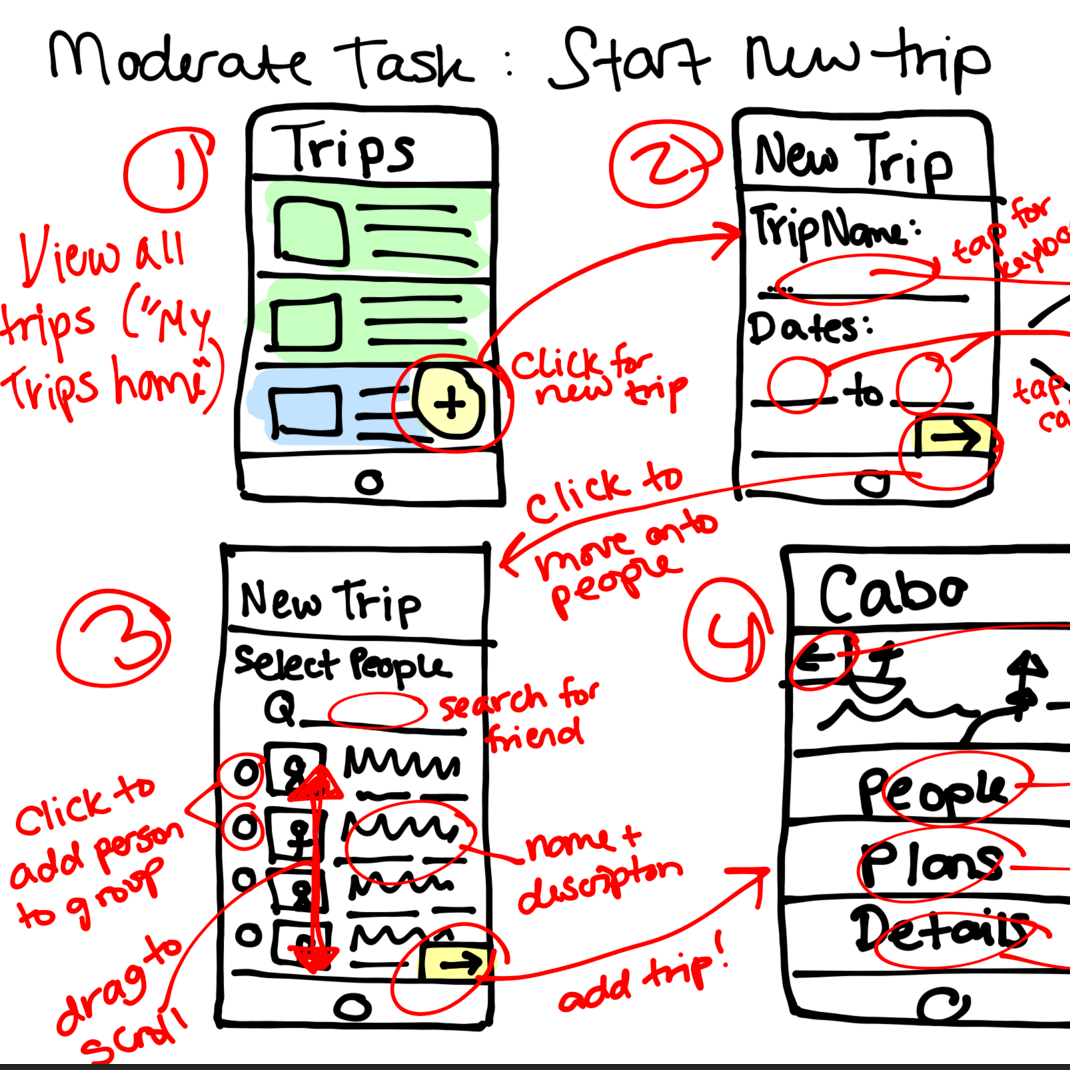 Moderate Task: Start new trip
1
Trips
View all
trips ("My
Trips home")
+
Click for
new trip
2
New Trip
Trip Name:
tap for
Dates:
to
tap
click to
move onto
people
3
New Trip
Select People
search for
friend
Click to
add person
to group
name +
description
drag to
scroll
add trip!
4
Cabo
People
Plans
Details